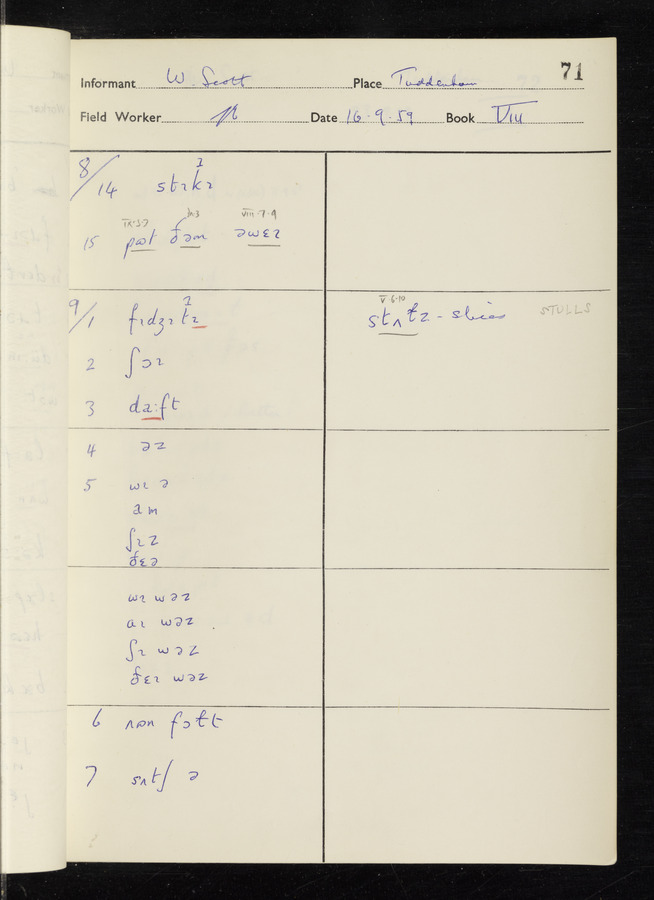 71
Informant W. Scott Place Tuddenham
Field Worker Date 16.9.59 Book VIII
8/14 stɪkɪ
IX·3·7 VIII·7·9
15 pʊt ðəm əwɛɪ
9/1 fɪdʒɪtɪ
2 ʃɔɪ
3 da:ft
4 əz
5 wɪ ə
am
ʃɪz
ðɛə
wɪ wəz
aɪ wəz
ʃɪ wəz
ðɛɪ wəz
6 nɒn fɔtt
7 sʌtʃ ə
V·6·10
stʌtz - slices STULLS